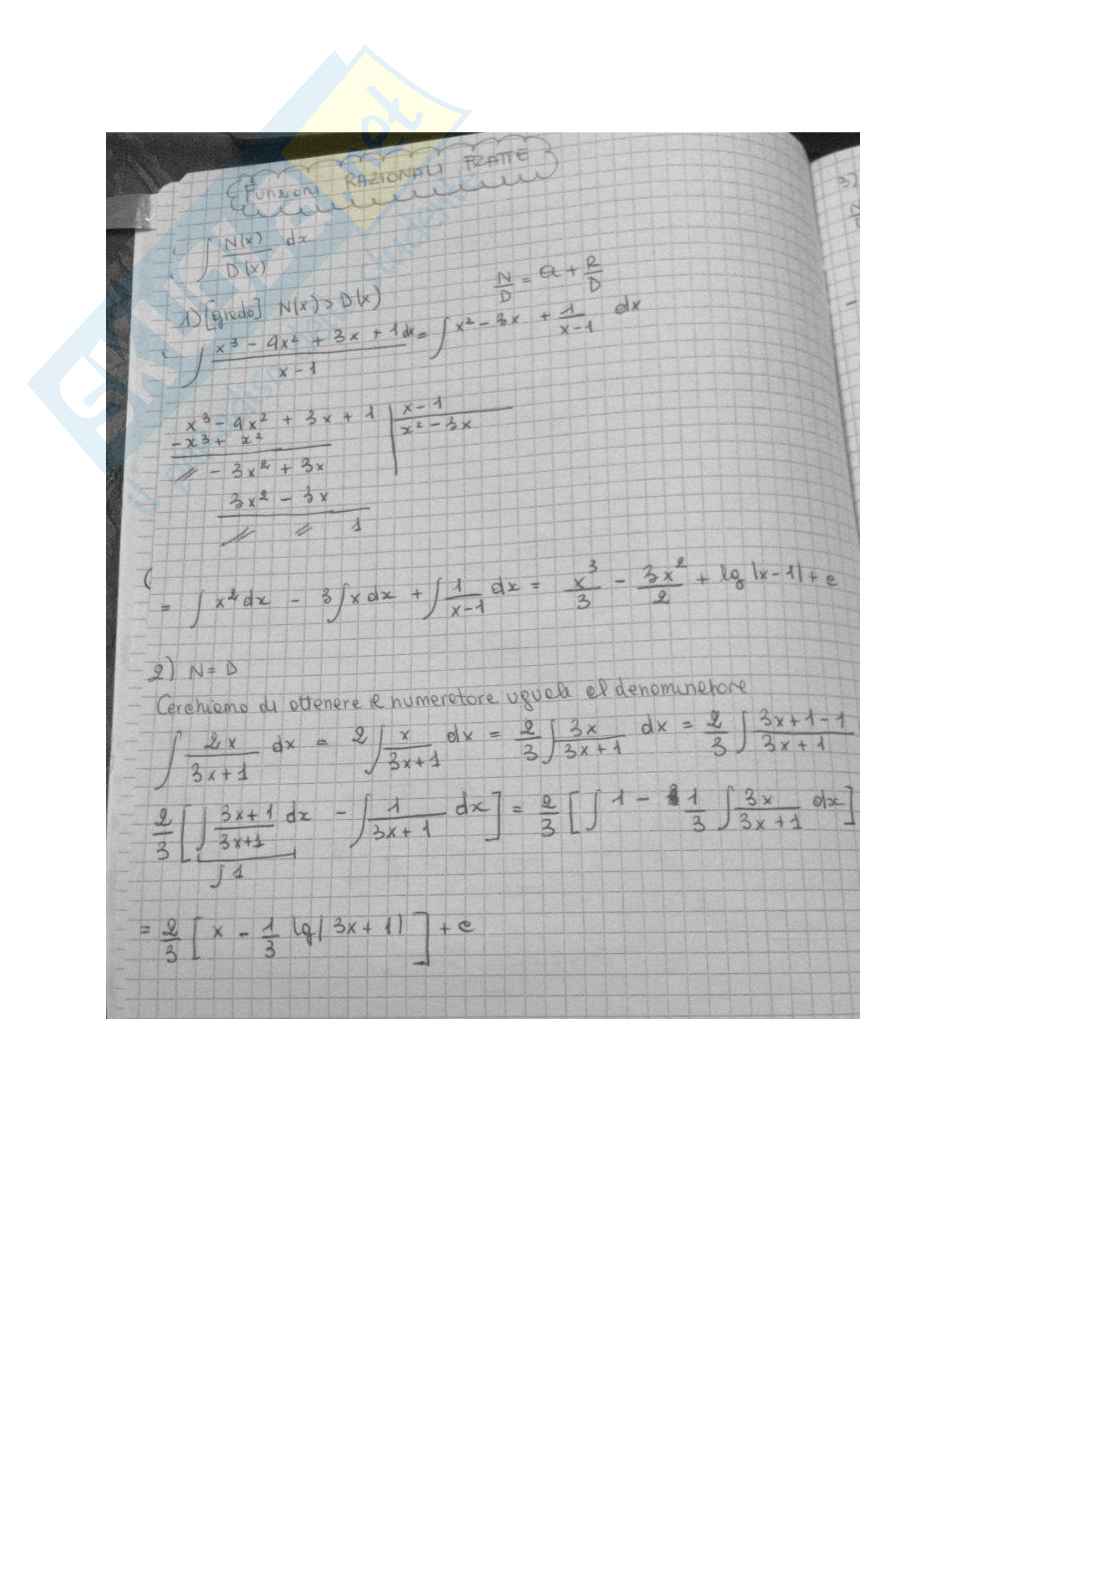 Funzioni RAZIONALI FRATTE
∫ N(x)/D(x) dx
1) [grado] N(x) > D(x)    N/D = Q + R/D
∫ (x³ - 4x² + 3x + 1)/(x-1) dx = ∫ x² - 3x + 1/(x-1) dx
x³ - 4x² + 3x + 1 | x-1
-x³ + x² | x² - 3x
// - 3x² + 3x
3x² - 3x
// // 1
= ∫ x² dx - 3∫ x dx + ∫ 1/(x-1) dx = x³/3 - 3x²/2 + lg |x-1| + c
2) N = D
Cerchiamo di ottenere il numeratore uguale al denominatore
∫ 2x/(3x+1) dx = 2∫ x/(3x+1) dx = 2/3 ∫ 3x/(3x+1) dx = 2/3 ∫ (3x+1-1)/(3x+1)
2/3 [∫ (3x+1)/(3x+1) dx - ∫ 1/(3x+1) dx] = 2/3 [∫ 1 - 1/3 ∫ 3x/(3x+1) dx]
∫ 1
= 2/3 [x - 1/3 lg |3x+1|] + c
3)